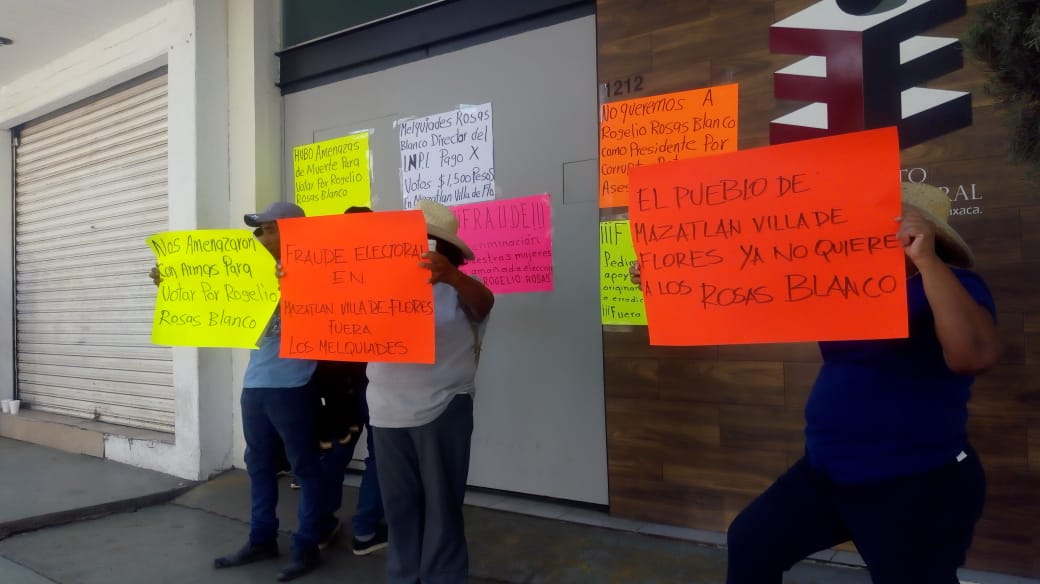 HUBO Amenazas
de Muerte Para
Votar Por Rogelio
Rosas Blanco
Melquiades Rosas
Blanco Director del
INPI Pago X
Votos $1,500 Pesos
En Mazatlan Villa de Flo
1212
No queremos A
Rogelio Rosas Blanco
como Presidente Por
Ases
Nos Amenazaron
Con Armas Para
Votar Por Rogelio
Rosas Blanco
FRAUDE ELECTORAL
EN
MAZATLAN VILLA DE FLORES
FUERA
LOS MELQUIADES
FRAUDE!!!
criminación
nuestras mujeres
amañada elección
ROGELIO ROSAS
¡¡¡F
Pedim
apoy
origina
¡¡¡Fuera
EL PUEBLO DE
MAZATLAN VILLA DE
FLORES YA NO QUIERE
A LOS ROSAS BLANCO
TO
RAL
axaca.